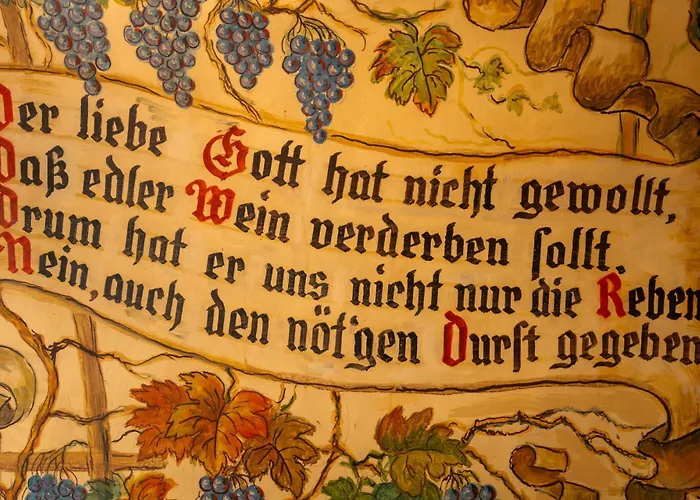 Der liebe Gott hat nicht gewollt,
Daß edler Wein verderben ſollt.
Drum hat er uns nicht nur die Reben
Nein, auch den nöt'gen Durſt gegeben